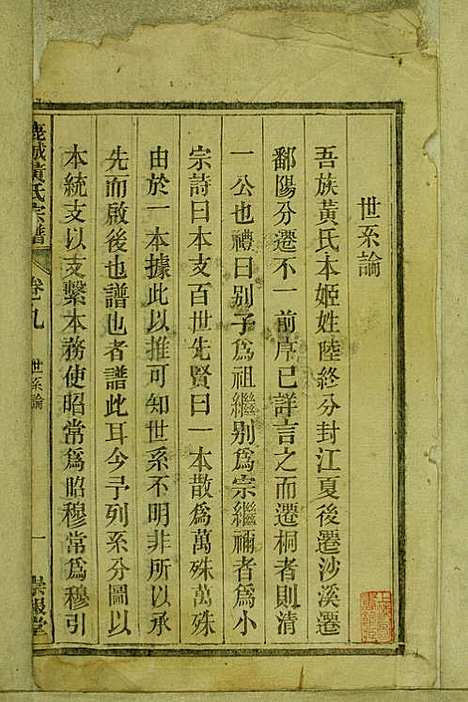 世系論
吾族黃氏本姬姓陸終分封江夏後遷沙溪遷
鄱陽分遷不一前序已詳言之而遷桐者則清
一公也禮曰別子為祖繼別為宗繼禰者為小
宗詩曰本支百世先賢曰一本散為萬殊萬殊
由於一本據此以推可知世系不明非所以承
先而啟後也譜也者譜此耳今予列系分圖以
本統支以支繫本務使昭常為昭穆常為穆引
黃氏宗譜 卷之九 世系論 一 報堂